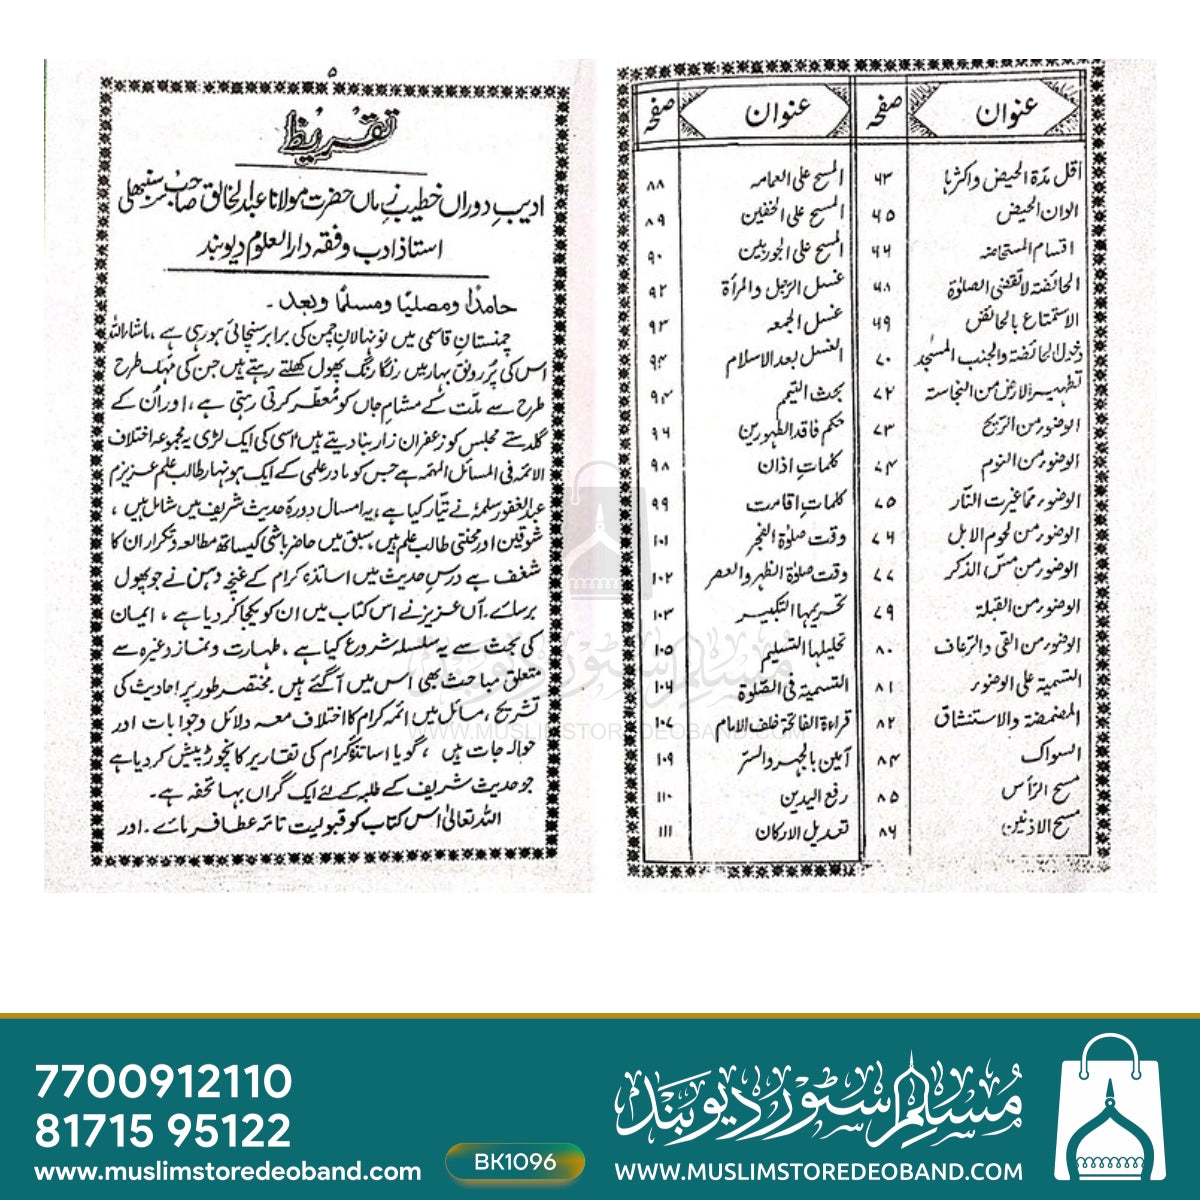 ۵
تقریظ
ادیبِ دوراں خطیبِ زماں حضرت مولانا عبدالخالق صاحب سنبھلی
استاذ ادب وفقہ دارالعلوم دیوبند
حامدًا ومصلیًا ومسلمًا وبعد۔
چمنستانِ قاسمی میں نونہالانِ چمن کی برابر سنچائی ہورہی ہے، ماشاراللہ
اس کی پُررونق بہار میں رنگارنگ پھول کھلتے رہتے ہیں جن کی مہک طرح
طرح سے ملّت کے مشامِ جاں کو مُعطّر کرتی رہتی ہے، اور اُن کے
گلدستے مجلس کو زعفران زار بنادیتے ہیں اسی کی ایک لڑی یہ مجموعہ اختلاف
الائمہ فی المسائل المہمہ ہے جس کو مادر علمی کے ایک ہونہار طالب علم عزیزم
عبدالغفور سلمہٗ نے تیار کیا ہے، یہ امسال دورۂ حدیث شریف میں شامل ہیں،
شوقین اور محنتی طالب علم ہیں، سبق میں حاضر باشی کیساتھ مطالعہ وتکرار ان کا
شغف ہے درسِ حدیث میں اساتذہ کرام کے غنچہ دہن نے جو پھول
برسائے۔ آں عزیز نے اس کتاب میں ان کو یکجا کردیا ہے، ایمان
کی بحث سے یہ سلسلہ شروع کیا ہے، طہارت ونماز وغیرہ سے
متعلق مباحث بھی اس میں آگئے ہیں۔ مختصر طور پر احادیث کی
تشریح، مسائل میں ائمہ کرام کا اختلاف معہ دلائل وجوابات اور
حوالہ جات ہیں، گویا اساتذہ کرام کی تقاریر کا نچوڑ پیش کردیا ہے
جو حدیث شریف کے طلبہ کے لئے ایک گراں بہا تحفہ ہے۔
اللہ تعالیٰ اس کتاب کو قبولیت تامّہ عطا فرمائے۔ اور
عنوان صفحہ عنوان صفحہ
اقل مدۃ الحیض واکثرہا ۶۳ المسح علی العمامہ ۸۸
الوان الحیض ۶۵ المسح علی الخفین ۸۹
اقسام المستحاضہ ۶۶ المسح علی الجوربین ۹۰
الحائضۃ لاتقضی الصلوٰۃ ۶۸ غسل الرّجل والمرأۃ ۹۲
الاستمتاع بالحائض ۶۹ غسل الجمعہ ۹۳
دخول الحائضۃ والجنب المسجد ۷۰ الغسل بعد الاسلام ۹۴
تطہیر الارض من النجاستہ ۷۲ بحث التیمم ۹۴
الوضور من الریح ۷۳ حکم فاقد الطہورین ۹۶
الوضور من النوم ۷۴ کلماتِ اذان ۹۸
الوضور مماغیرت النّار ۷۵ کلماتِ اقامت ۹۹
الوضور من لحوم الابل ۷۶ وقت صلوٰۃ الفجر ۱۰۱
الوضور من مسّ الذکر ۷۷ وقت صلوٰۃ الظہر والعصر ۱۰۲
الوضور من القبلۃ ۷۹ تحریمہا التکبیر ۱۰۳
الوضور من القی والرعاف ۸۰ تحلیلہا التسلیم ۱۰۵
التسمیۃ علی الوضور ۸۱ التسمیۃ فی الصّلوٰۃ ۱۰۶
المضمضۃ والاستنشاق ۸۲ قراءۃ الفاتحۃ خلف الامام ۱۰۷
السواک ۸۴ آمین بالجہر والسّر ۱۰۹
مسح الرّأس ۸۵ رفع الیدین ۱۱۰
مسح الاذنین ۸۶ تعدیل الارکان ۱۱۱
مسلم سٹور دیوبند
WWW.MUSLIMSTOREDEOBAND.COM
7700912110
81715 95122
www.muslimstoredeoband.com
BK1096
مسلم سٹور دیوبند
WWW.MUSLIMSTOREDEOBAND.COM